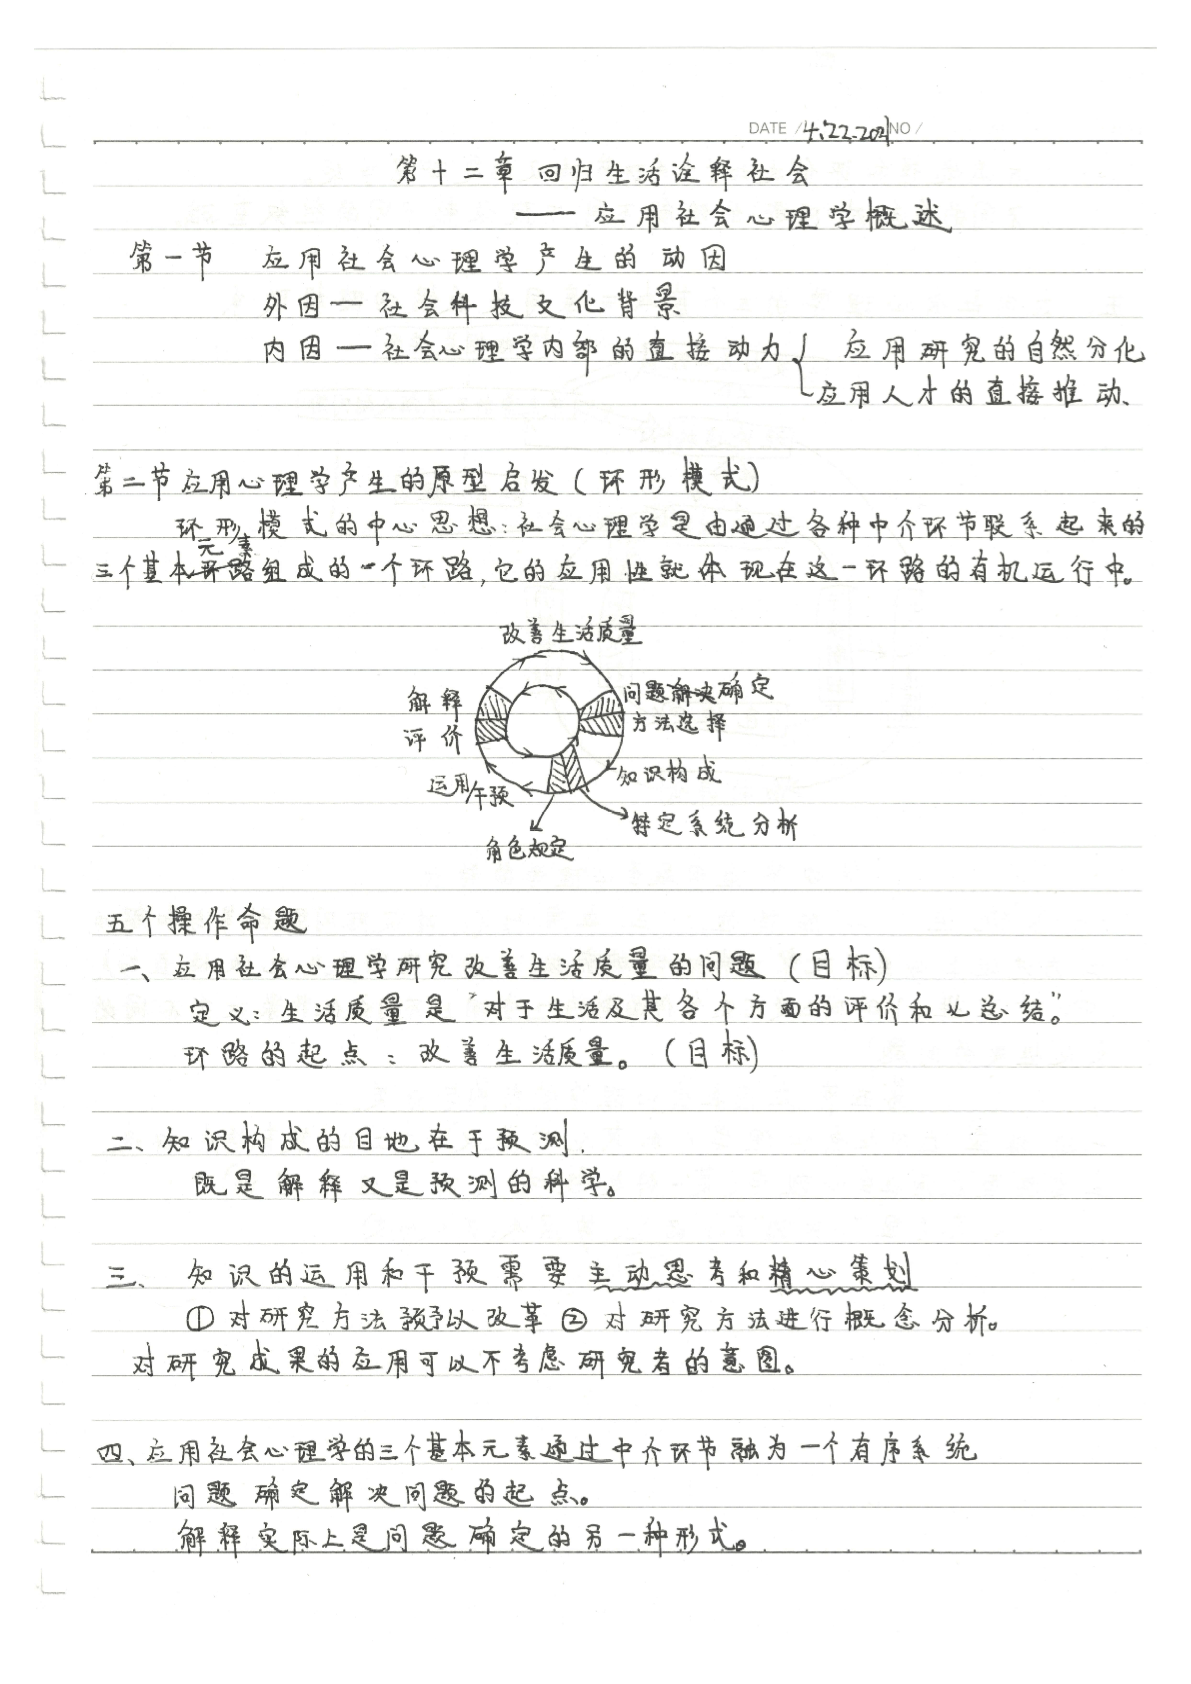 DATE / 4.22.2021 NO /
第十二章 回归生活诠释社会
—— 应用社会心理学概述
第一节 应用社会心理学产生的动因
外因—社会科技文化背景
内因—社会心理学内部的直接动力{ 应用研究的自然分化
应用人才的直接推动、
第二节应用心理学产生的原型启发(环形模式)
环形模式的中心思想:社会心理学是由通过各种中介环节联系起来的
元素
三个基本环路组成的一个环路,它的应用性就体现在这一环路的有机运行中。
改善生活质量
解释
评价
问题解决确定
方法选择
运用干预
知识构成
特定系统分析
角色规定
五个操作命题
一、应用社会心理学研究改善生活质量的问题(目标)
定义:生活质量是“对于生活及其各个方面的评价和总结。”
环路的起点:改善生活质量。(目标)
二、知识构成的目地在于预测.
既是解释又是预测的科学。
三、知识的运用和干预需要主动思考和精心策划
①对研究方法予以改革②对研究方法进行概念分析。
对研究成果的应用可以不考虑研究者的意图。
四、应用社会心理学的三个基本元素通过中介环节融为一个有序系统
问题确定解决问题的起点。
解释实际上是问题确定的另一种形式。